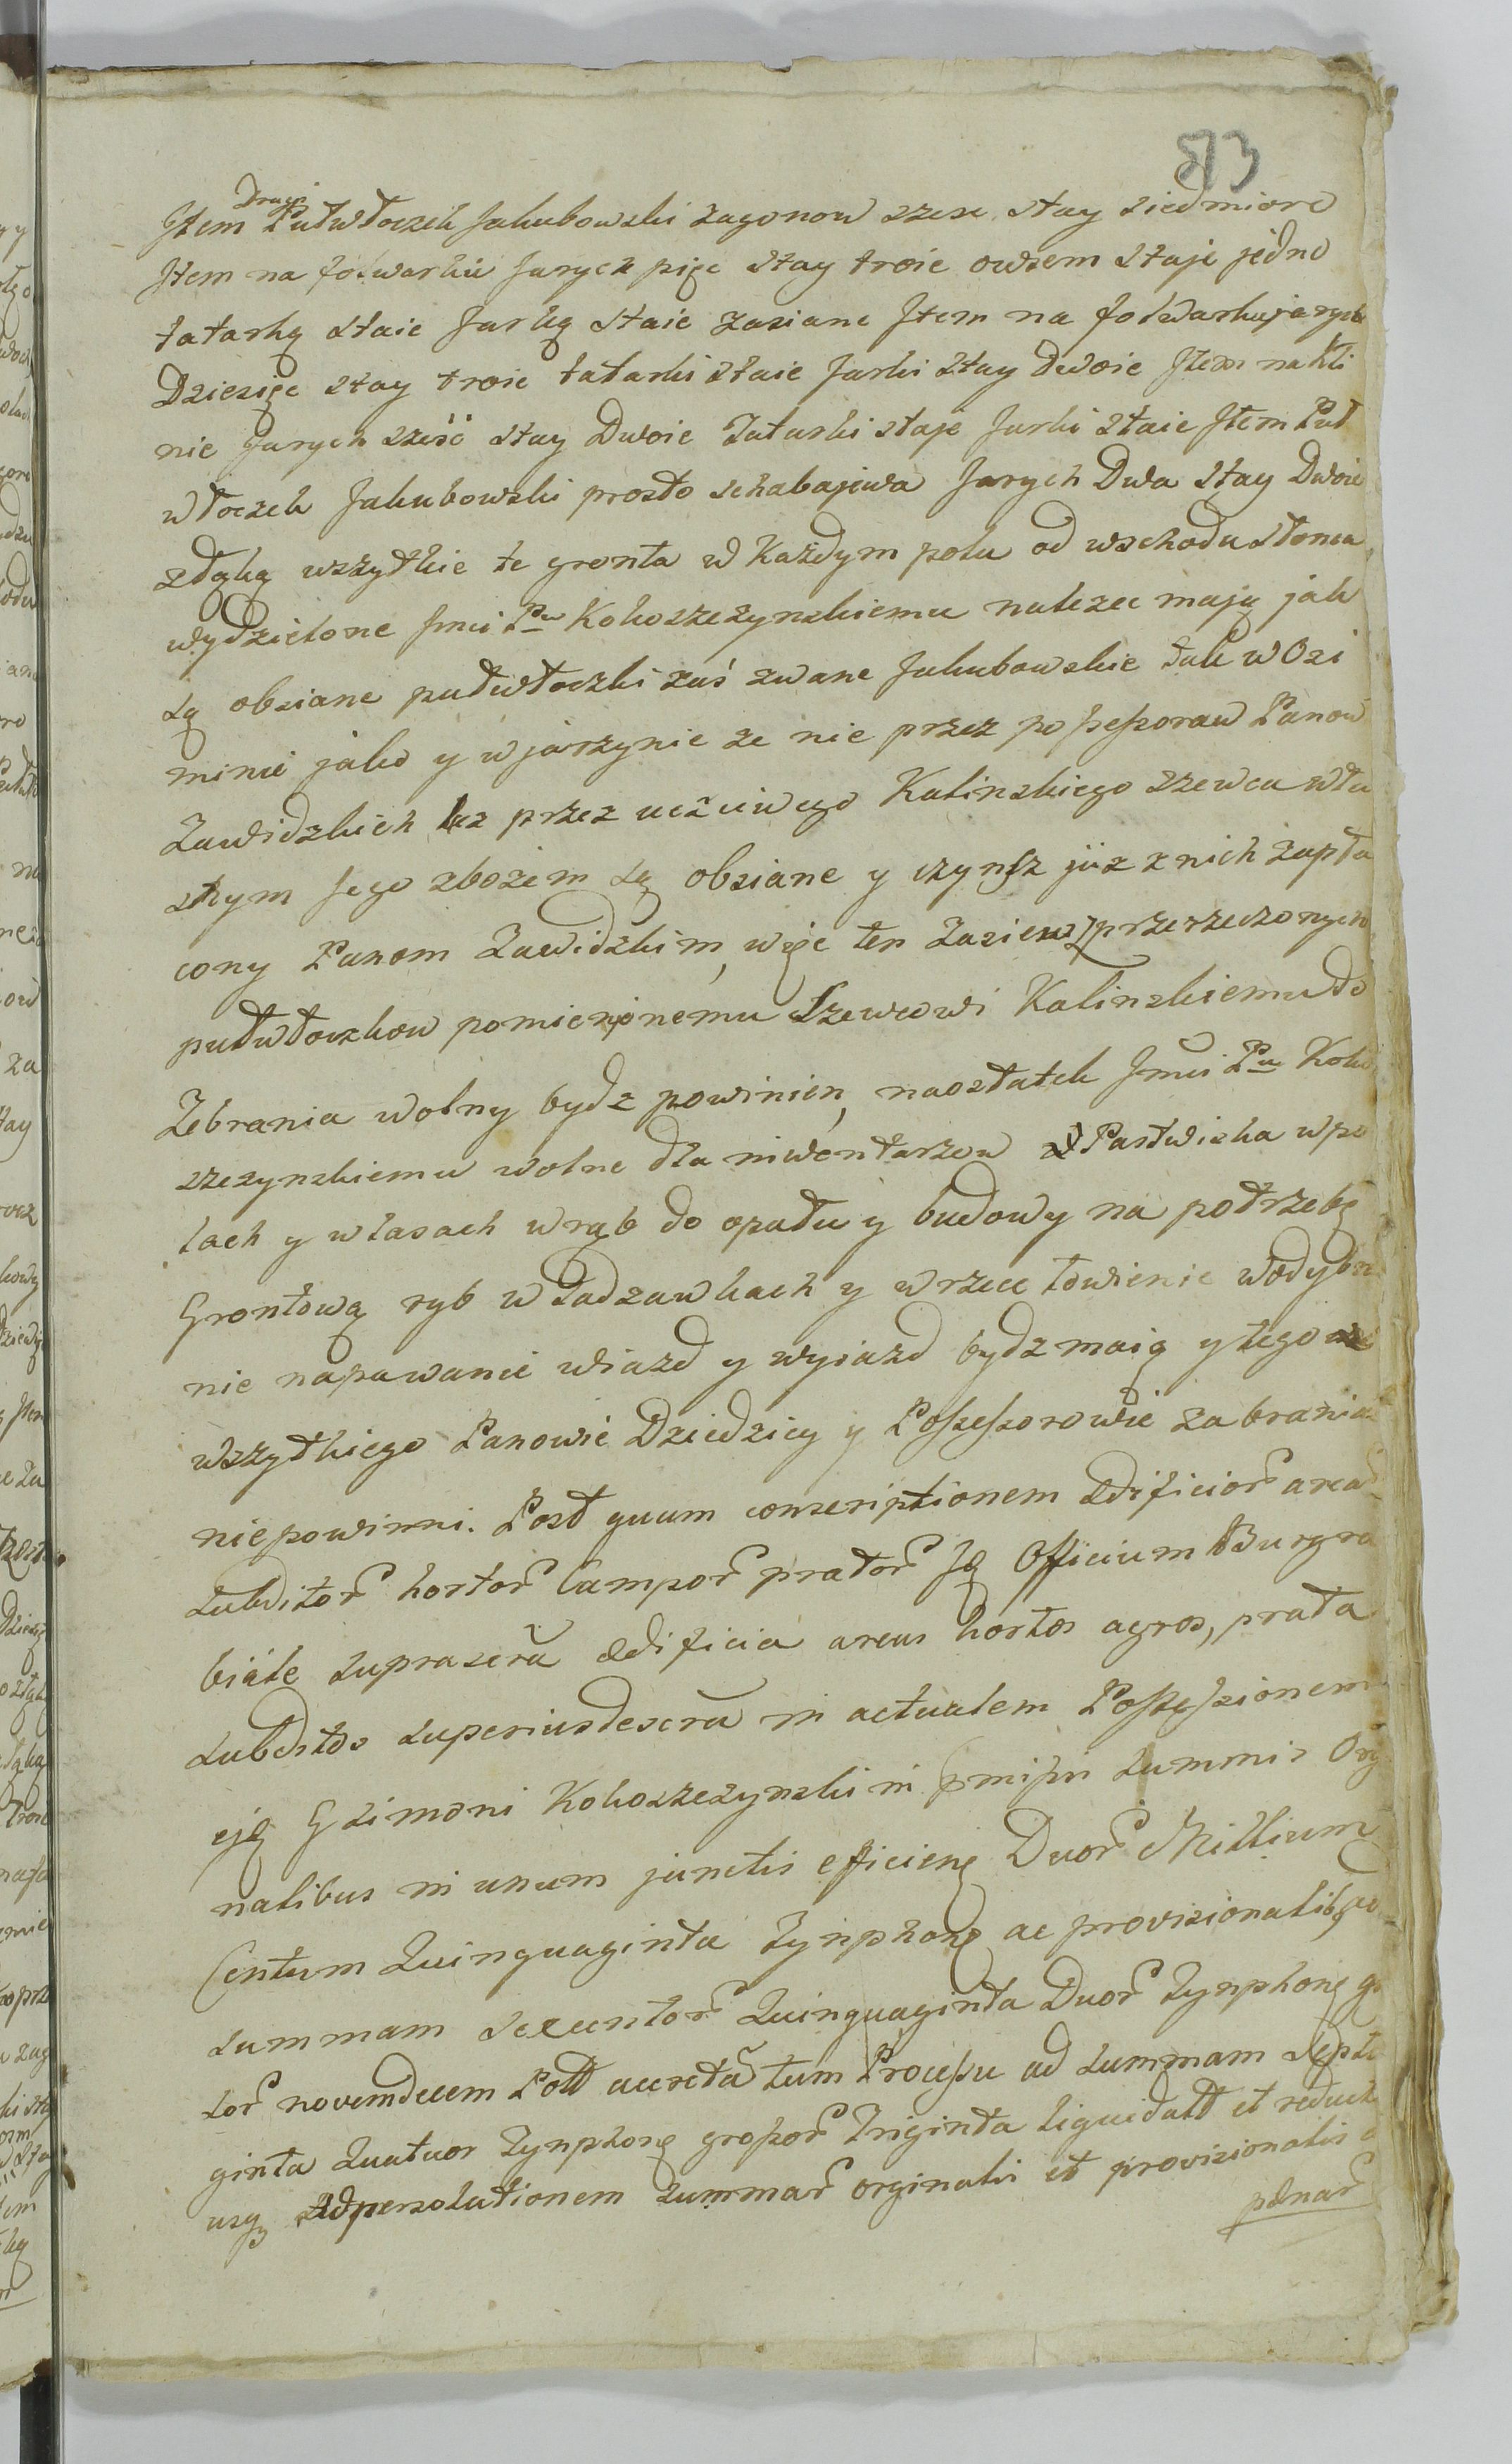 513
Drugi
Item Pułwłoczek Jakubowski zagonow szesc stay siedmioro
Item na folwarku Jarych pięc stay troie owsem staje jedno
tatarką staie Jarką staie zasiane Item na folwarku jarych
Dziesięc stay troie tatarki staie Jarki stay Dwoie Item na kli
nie Jarych sześć stay Dwoie Tatarki staje Jarki staie Item Puł
włoczek Jakubowski prosto schabajewa Jarych Dwa stay Dwoie
złąką wszytkie te gronta w Każdym polu od wschodu słonca
wydzielone Jmci Pu Kokoszczynskiemu nalezec mają jak
są obsiane pułwłoczki zaś zwane Jakubowskie tak w Ozi
minie jako y w jarzynie ze nie przez possessorow Panow
Zawidzkich lez przez uczciwego Kalinskiego szewca wła
snym Jego zbożem są obsiane y czynsz już z nich zapła
cony Panom Zawidzkim, więc ten Zasiew z przerzeczonych
pułwłoczkow pomienionemu Szewcowi Kalinskiemu do
Zebrania wolny bydz powinien, naostatek Jmci Pu Koko
szczynskiemu wolne dla inwentarzow Pastwiska w po
lach y w lasach wrąb do opału y budowy na potrzebę
Grontową ryb w Sadzawkach y w rzece łowienie wody bra
nie napawanie wiazd y wyiazd bydz maią y tego
wszytkiego Panowie Dziedzicy y Possessorowie zabraniac
niepowinni. Post quam conscriptionem ædificior area
Subditor hortor Campor prator Iq Officium Burgra
biale suprascra ædificia areas hortos agros, prata
Subditos superiusdescra in actualem Possessionem
ejq G Simoni Kokoszczynski in pmissis summis Ory
nalibus in unum junctis efficienq Duor Millium
Centum Quinquaginta Tynphonq ac provisionalibq ad
summam sexcentor Quinquaginta Duor Tynphonq gr
sor novemdecem Poll accreta tum Processu ad summam Septu
ginta Quatuor Tynphonq grossor Triginta liquidatt et reduct
usq adpersolutionem summar orginalis et provisionalis
pænar